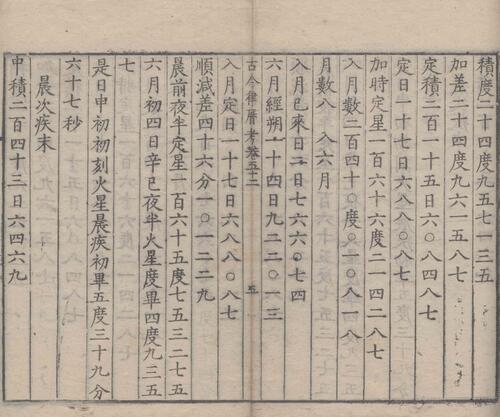 積度二十四度九五七一三五
加差二十四度九六一五八七
定積二百一十五日六〇八四八七
定日一十七日六八八〇八七
加時定星一百六十六度二一四二八七
入月數二百四十〇度〇一〇八一八
月數八　入六月
入月已來日二日七六六〇七四
六月經朔一十四日九二二〇一三
古今律曆考卷五十二　五
入月定日一十七日六八八〇八七
順減差四十六分一〇一二二九
晨前夜半定星一百六十五度七五三二七五
六月初四日辛巳夜半火星度畢四度九三五
七
是日申初初刻火星晨疾初畢五度三十九分
六十七秒
晨次疾末
中積二百四十三日六四六九